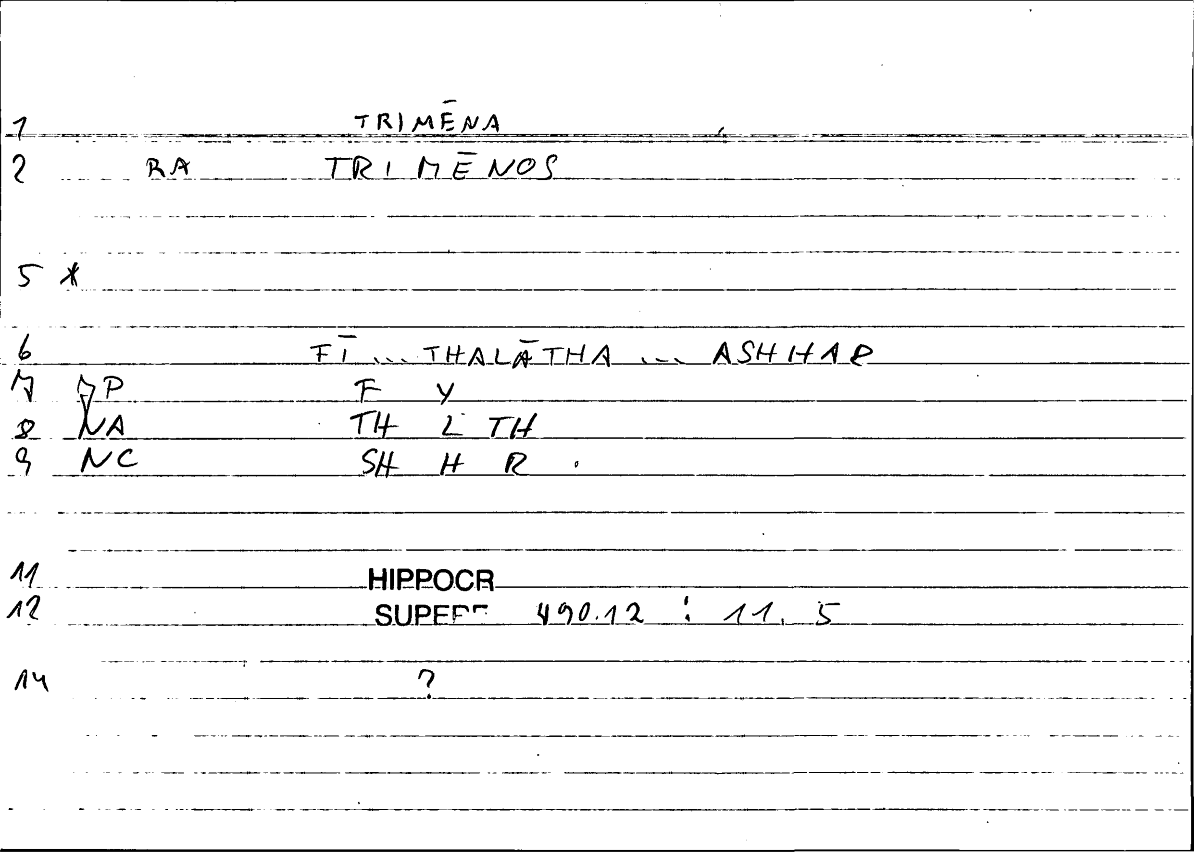 1 TRIMĒNA
2 RA TRIMĒNOS
5 *
6 FĪ ... THALĀTHA ... ASHHAR
7 NP F Y
8 NA TH L TH
9 NC SH H R .
11 HIPPOCR
12 SUPERF 490.12 : 11.5
14 ?